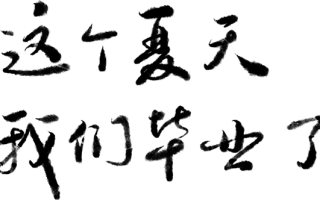 这个夏天
我们毕业了